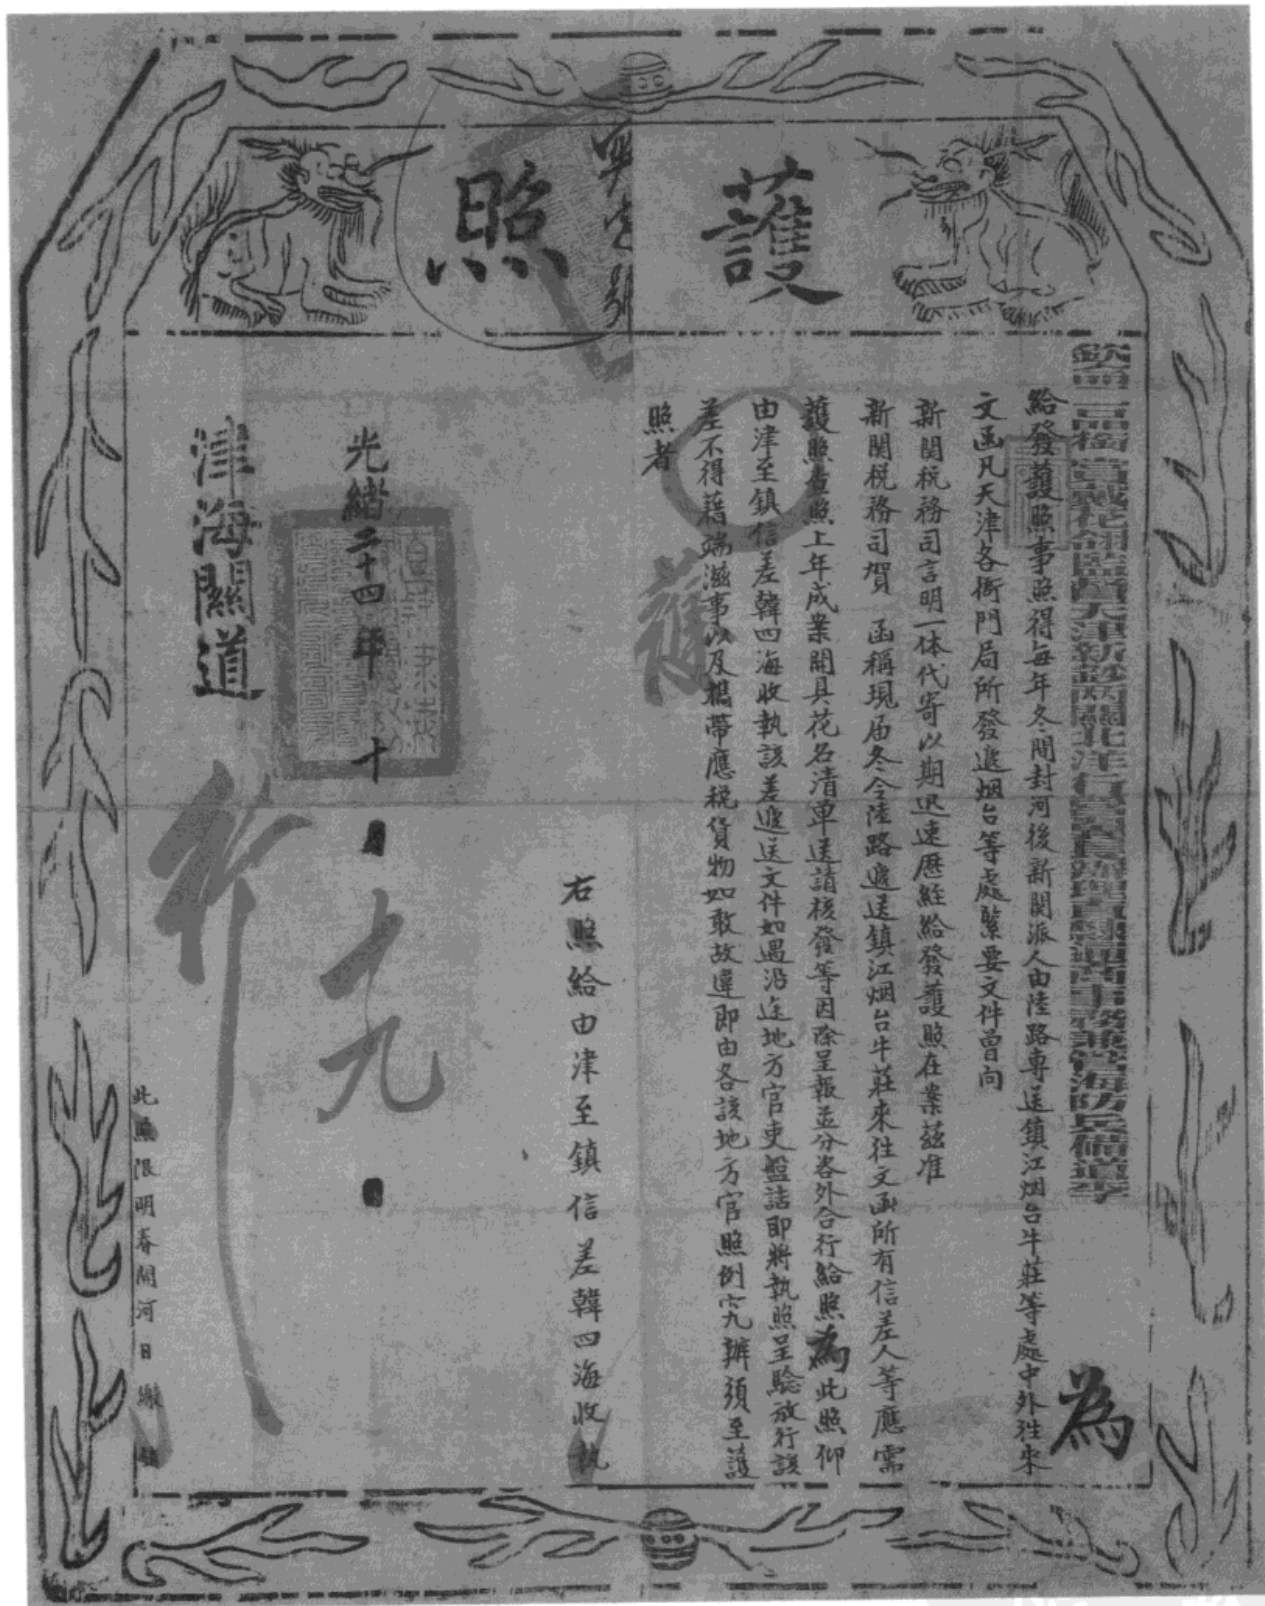 護照
欽命二品銜賞戴花翎監督天津新鈔兩關北洋行營翼長辦理直隸通商事務兼管海防兵備道李
為
給發護照事照得每年冬間封河後新關派人由陸路專送鎮江烟台牛莊等處中外往來
文函凡天津各衙門局所發遞烟台等處緊要文件曾向
新關稅務司言明一体代寄以期迅速歷經給發護照在案茲准
新關稅務司賀 函稱現届冬令陸路遞送鎮江烟台牛莊來往文函所有信差人等應需
護照查照上年成案開具花名清單送請核發等因除呈報並分咨外合行給照為此照仰
由津至鎮信差韓四海收執該差遞送文件如遇沿途地方官吏盤詰即將執照呈驗放行該
差不得藉端滋事以及攜帶應稅貨物如敢故違即由各該地方官照例究辦須至護
照者
右照給由津至鎮信差韓四海收執
光緒二十四年十月十九日
津海關道
行
此照限明春開河日繳銷